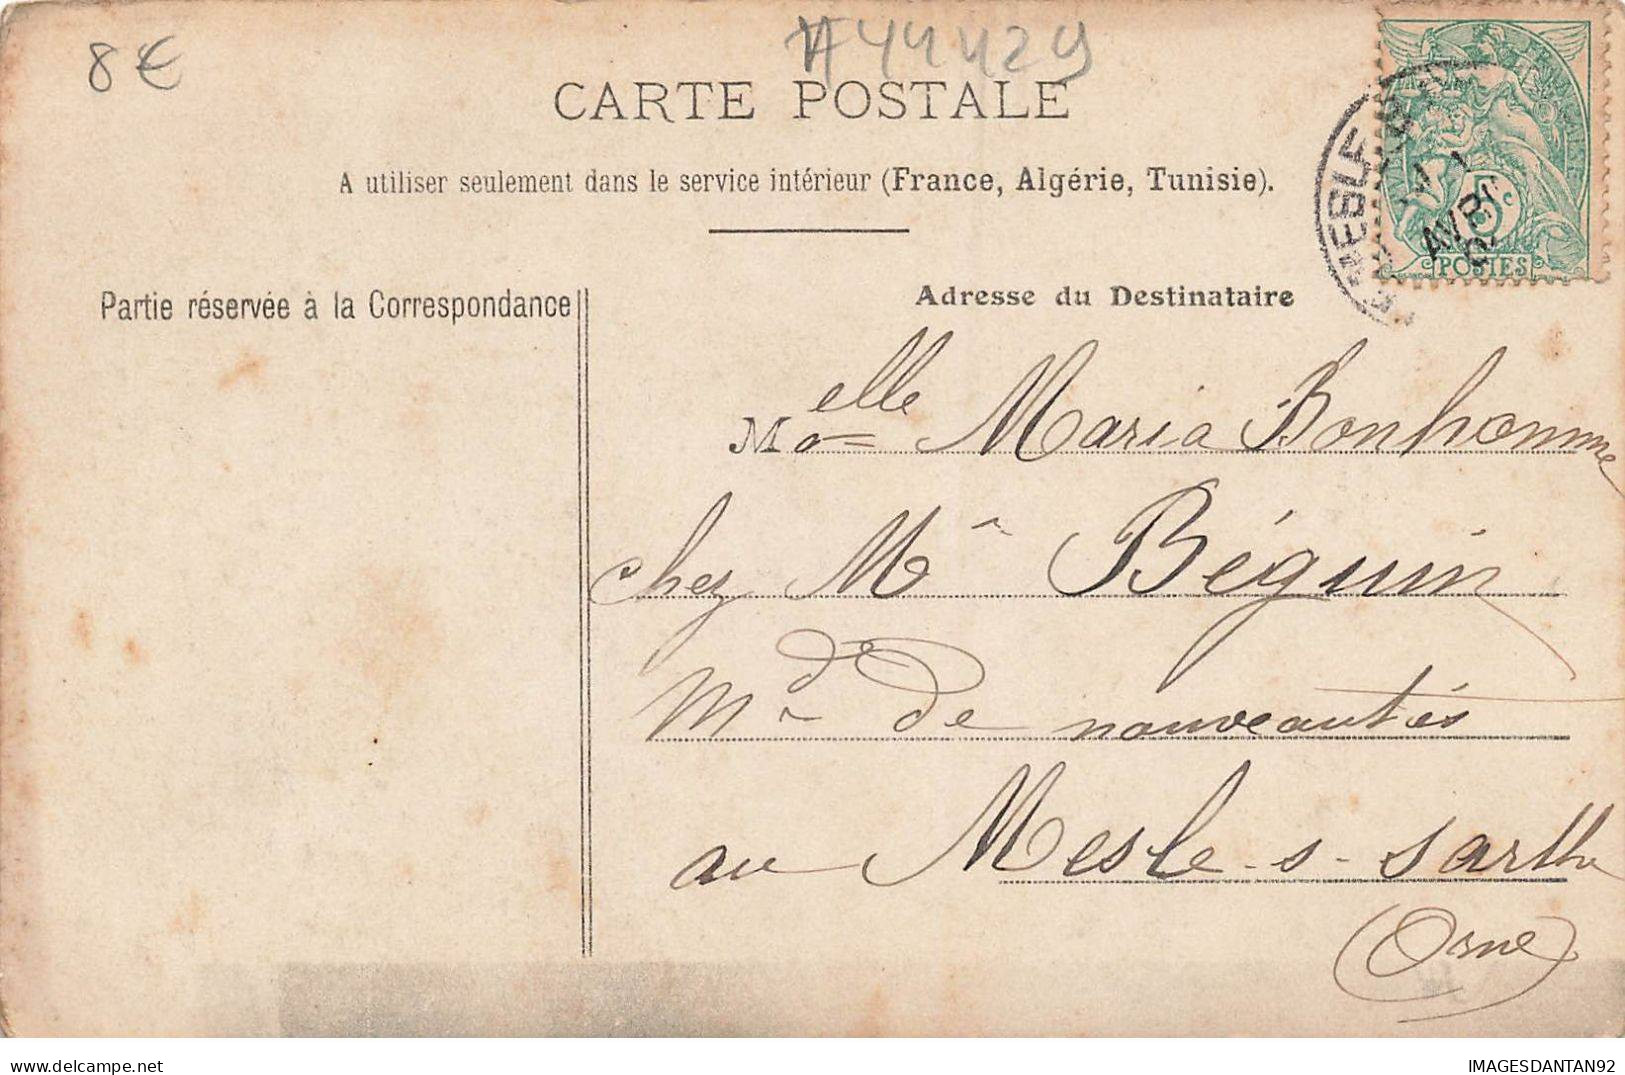 8€
#44429
CARTE POSTALE
A utiliser seulement dans le service intérieur (France, Algérie, Tunisie).
Partie réservée à la Correspondance
Adresse du Destinataire
5c
POSTES
AVRIL
Melle Maria Bonhomme
chez Mr Béguin
Md de nouveautés
au Mesle-s-Sarthe
(Orne)
IMAGESDANTAN92